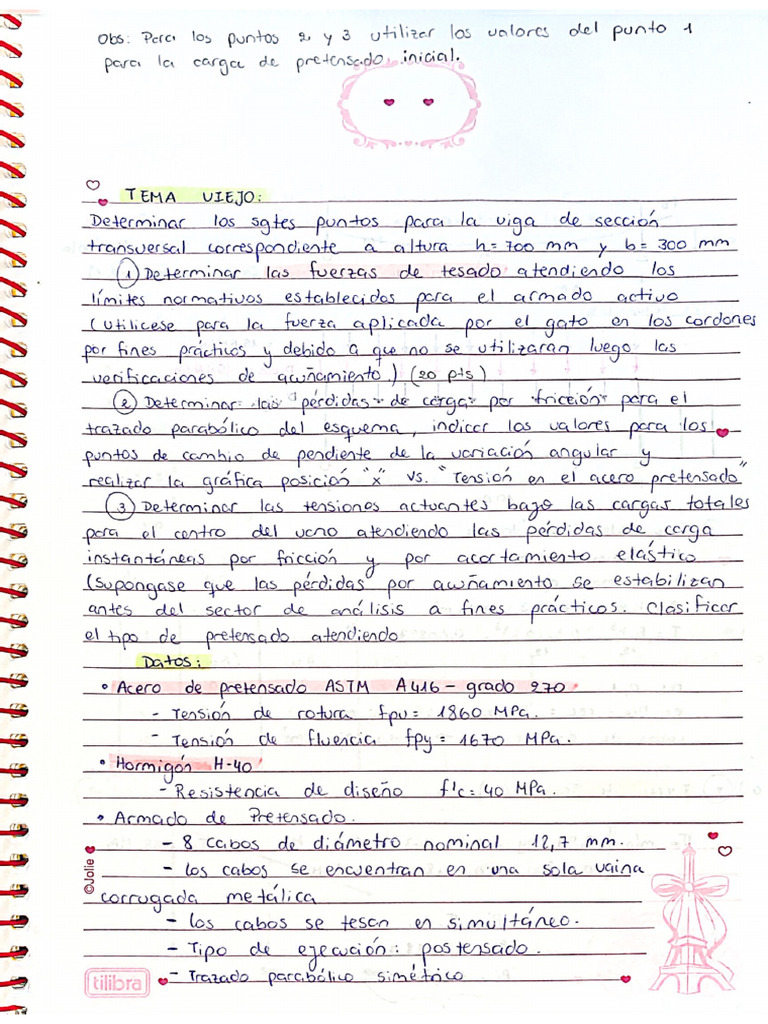 Obs: Para los puntos 2 y 3 utilizar los valores del punto 1
para la carga de pretensado inicial.
TEMA VIEJO:
Determinar los sgtes puntos para la viga de sección
transversal correspondiente a altura h= 700 mm y b= 300 mm
① Determinar las fuerzas de tesado atendiendo los
límites normativos establecidos para el armado activo
(Utilicese para la fuerza aplicada por el gato en los cordones
por fines prácticos y debido a que no se utilizaran luego las
verificaciones de acuñamiento.) (20 pts)
② Determinar las pérdidas de carga por fricción para el
trazado parabólico del esquema, indicar los valores para los
puntos de cambio de pendiente de la variación angular y
realizar la gráfica posición "x" vs. "Tensión en el acero pretensado"
③ Determinar las tensiones actuantes bajo las cargas totales
para el centro del vano atendiendo las pérdidas de carga
instantáneas por fricción y por acortamiento elástico
(Supongase que las pérdidas por acuñamiento se estabilizan
antes del sector de análisis a fines prácticos. Clasificar
el tipo de pretensado atendiendo
Datos:
• Acero de pretensado ASTM A416 - grado 270
- Tensión de rotura fpu = 1860 MPa.
- Tensión de fluencia fpy = 1670 MPa.
• Hormigón H-40
- Resistencia de diseño f'c = 40 MPa.
• Armado de Pretensado.
- 8 cabos de diámetro nominal 12,7 mm.
- Los cabos se encuentran en una sola vaina
corrugada metálica
- Los cabos se tesan en simultáneo.
- Tipo de ejecución: postensado.
- Trazado parabólico simétrico
©Jolie
tilibra